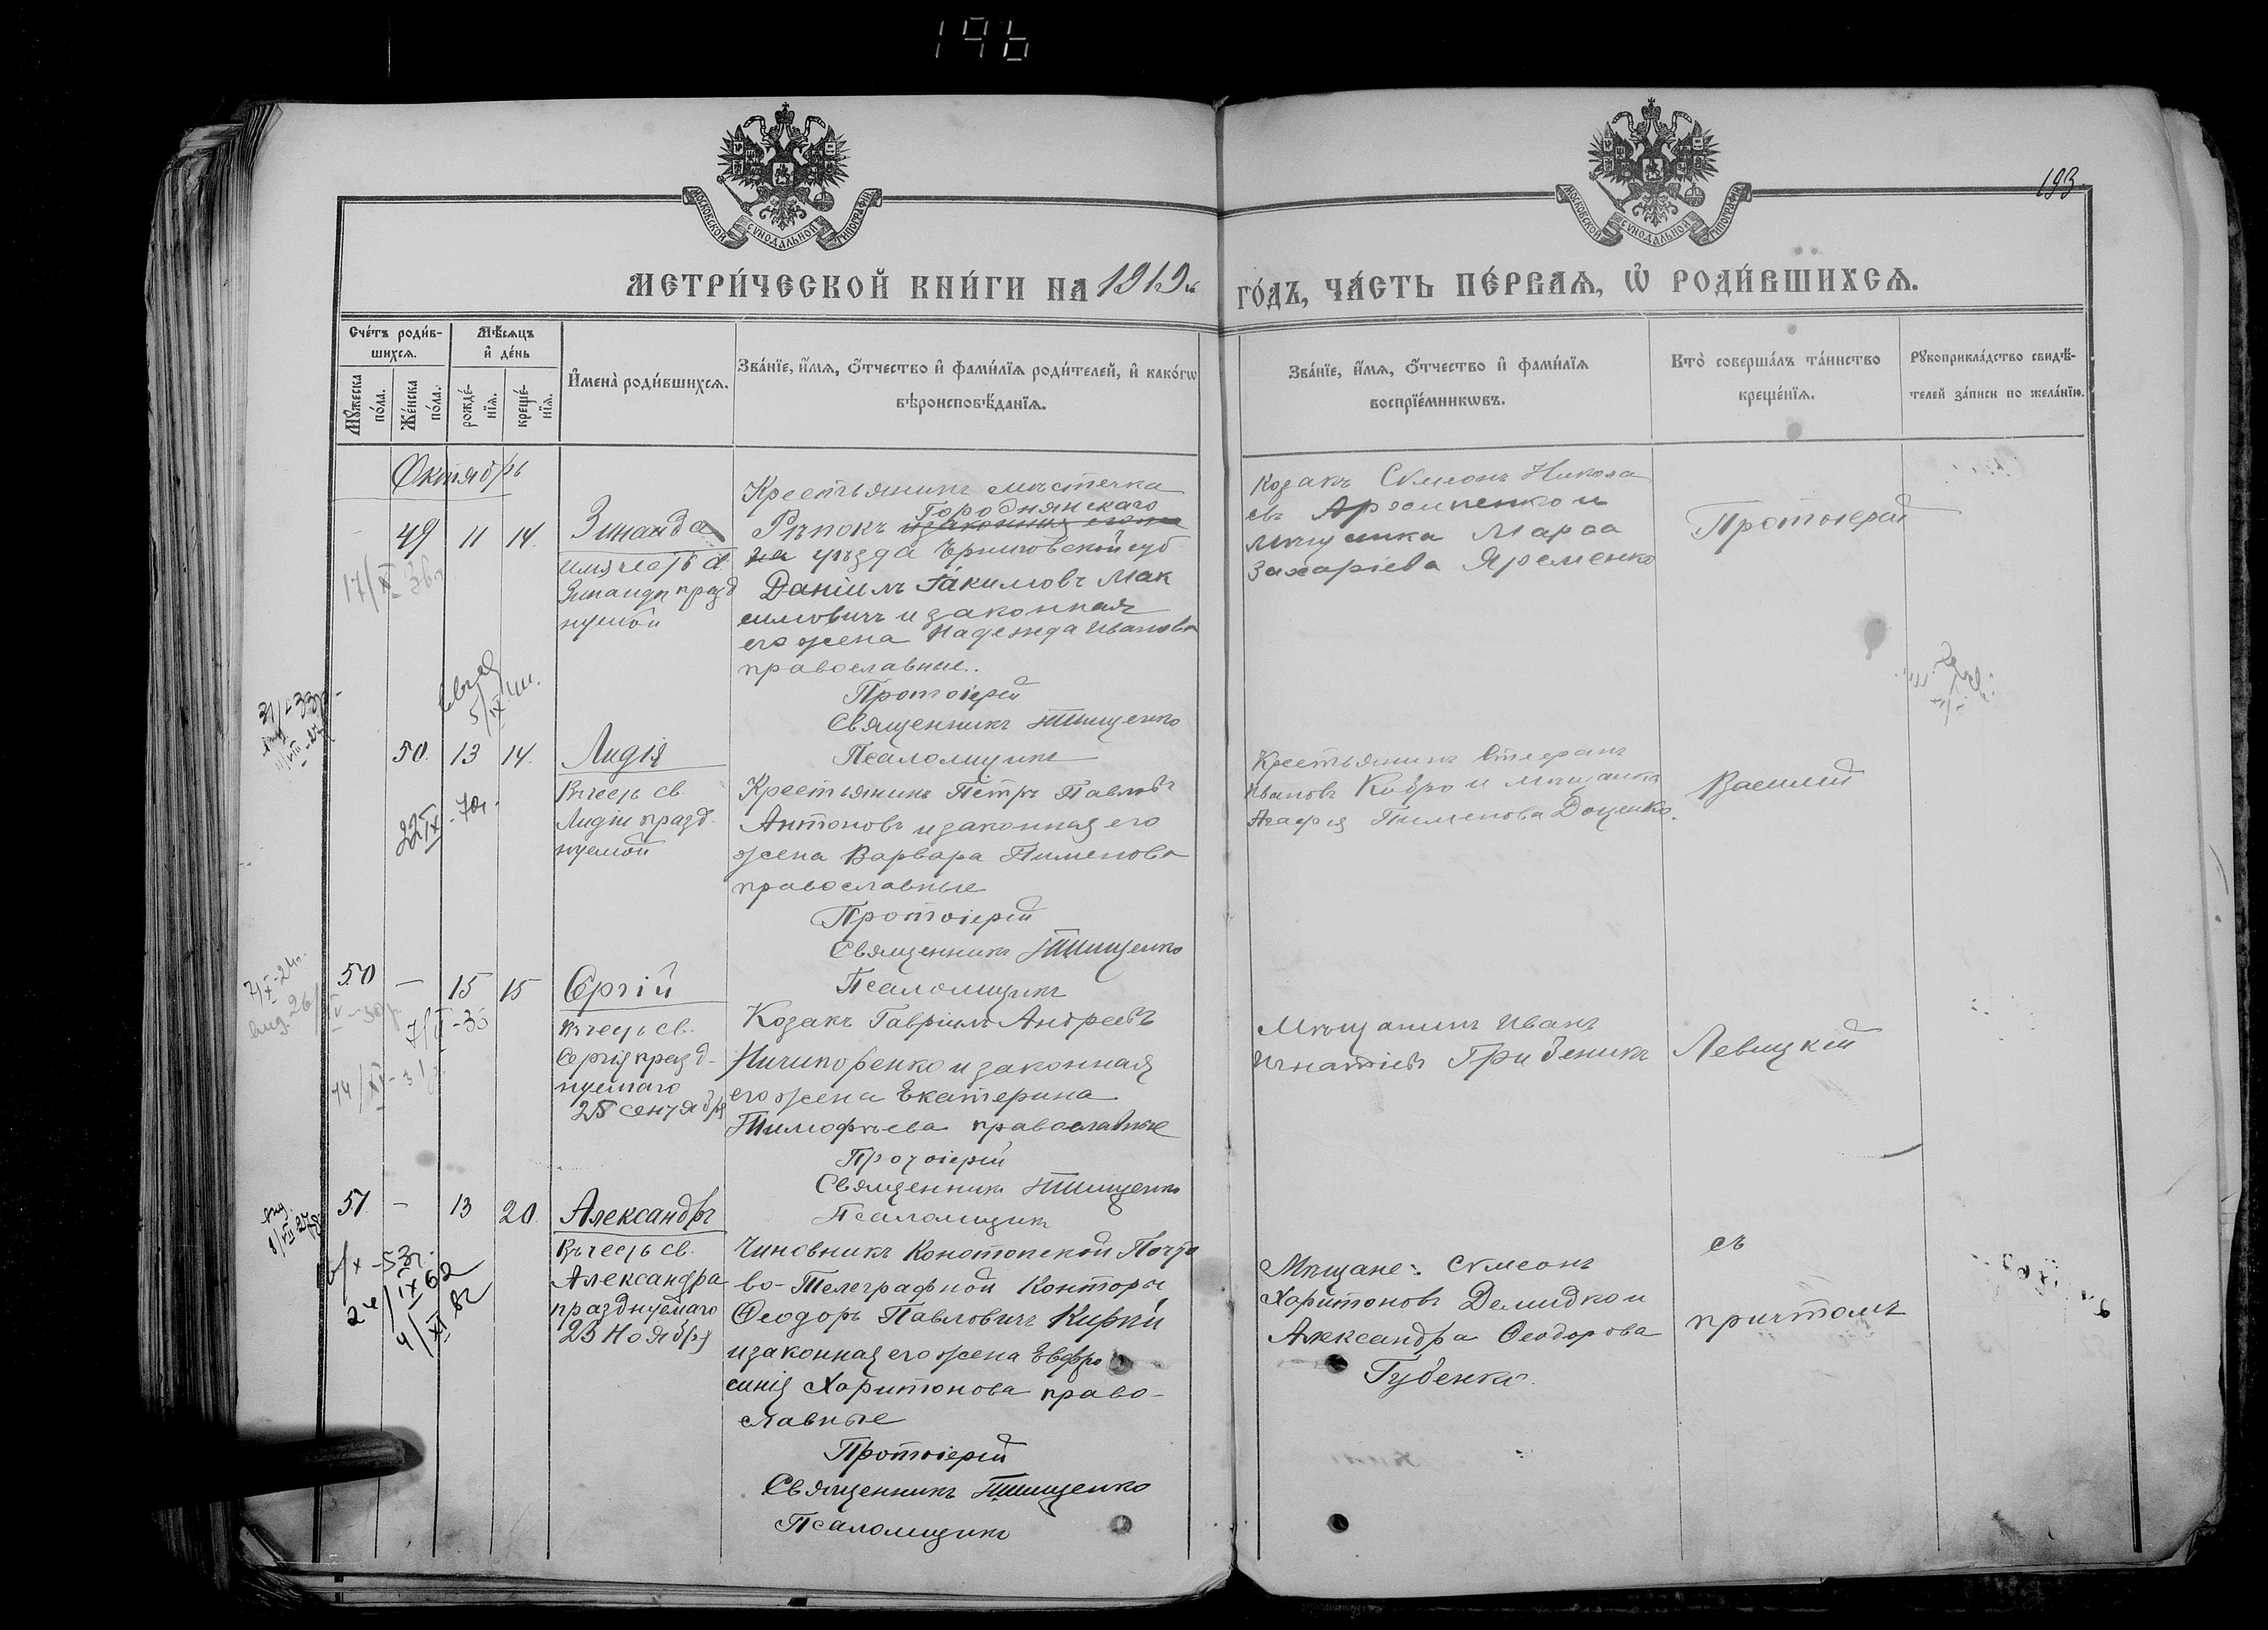 196
193
МОСКОВСКОЙ СѴНОДАЛЬНОЙ ТИПОГРАФІИ
МОСКОВСКОЙ СѴНОДАЛЬНОЙ ТИПОГРАФІИ
МЕТРИ́ЧЕСКОЙ КНИ́ГИ НА 1919й
ГО́ДЪ, ЧА́СТЬ ПЕ́РВАѦ, Ѡ РОДИ́ВШИХСѦ.
Сче́тъ роди́в-
шихсѧ.
Мꙋжеска по́ла.
Же́нска по́ла.
Мѣ́сѧцъ
и҆ де́нь
рожде́-
нїѧ.
креще́-
нїѧ.
И҆мена̀ роди́вшихсѧ.
Зва́нїе, и҆́мѧ, ѻ҆́тчество и҆ фами́лїѧ роди́телей, и҆ како́гѡ
вѣроисповѣ́данїѧ.
Зва́нїе, и҆́мѧ, ѻ҆́тчество и҆ фами́лїѧ
воспрїе́мникѡвъ.
Кто̀ соверша́лъ та́инство
креще́нїѧ.
Рꙋкоприкла́дство свидѣ́-
телей за́писи по жела́нїю.
Октябрь
49 11 14.
Зинаида
въ честь св.
Зинаиды празд
нуемой
Крестьянинъ мѣстечка
Городнянскаго
Рѣпокъ изаконная его же
на уѣзда Черниговской губ
Даніилъ Іакимовъ Мак
симовичъ и законная
его жена Надежда Иванова
православные.
Протоіерей
Священникъ Тищенко
Псаломщикъ
Козакъ Сѵмеонъ Никола
евъ и
мѣщанка Марѳа
Захаріева Яременко
Протоіерей
50. 13 14.
Лидія
Въ честь св.
Лидіи празд-
нуемой
Крестьянинъ Петръ Павловъ
Антоновъ и законная его
жена Варвара Пименова
православные
Протоіерей
Священникъ Тищенко
Псаломщикъ
Крестьянинъ Стефанъ
Ивановъ Кобро и мѣщанка
Агафія Пименова Доценко.
Василій
50 — 15 15
Сергій
Въ честь св.
Сергія празд-
нуемаго
25 сентября
Козакъ Гавріилъ Андреевъ
Ничипоренко и законная
его жена Екатерина
Тимофѣева православные
Протоіерей
Священникъ Тищенко
Псаломщикъ
Мѣщанинъ Иванъ
Игнатіевъ Грибеникъ
Левицкій
51. — 13 20.
Александръ
Въ честь св.
Александра
празднуемаго
23 Ноября
Чиновникъ Конотопской Почто
во-Телеграфной Конторы
Ѳеодоръ Павловичъ Кирѣй
и законная его жена Евфро
синія Харитонова право-
славные
Протоіерей
Священникъ Тищенко
Псаломщикъ
Мѣщане: Сѵмеонъ
Харитоновъ Демидко и
Александра Ѳеодорова
Губенко.
съ
причтомъ